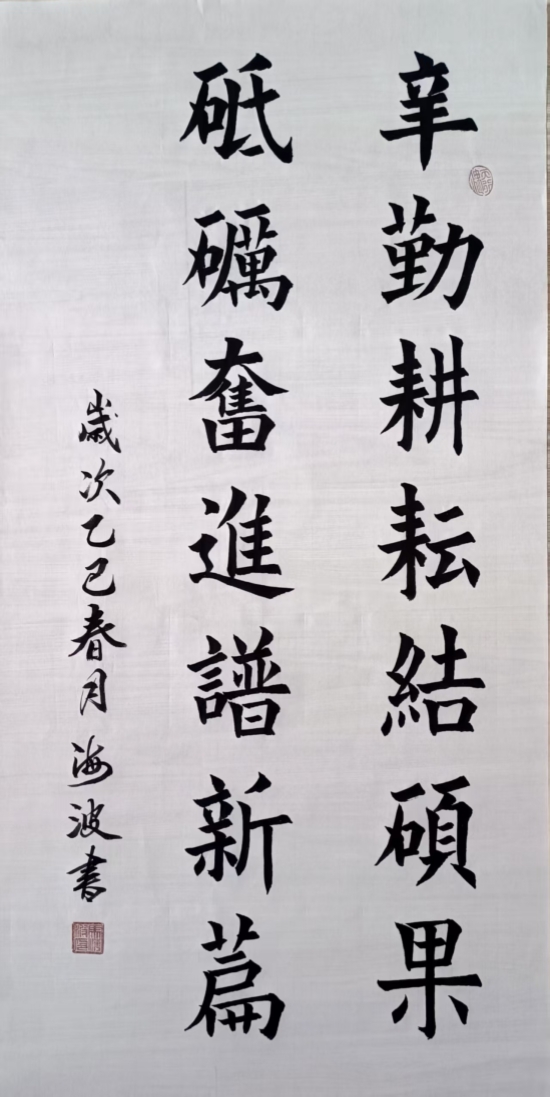 辛勤耕耘結碩果
砥礪奮進譜新篇
歲次乙巳春月海波書